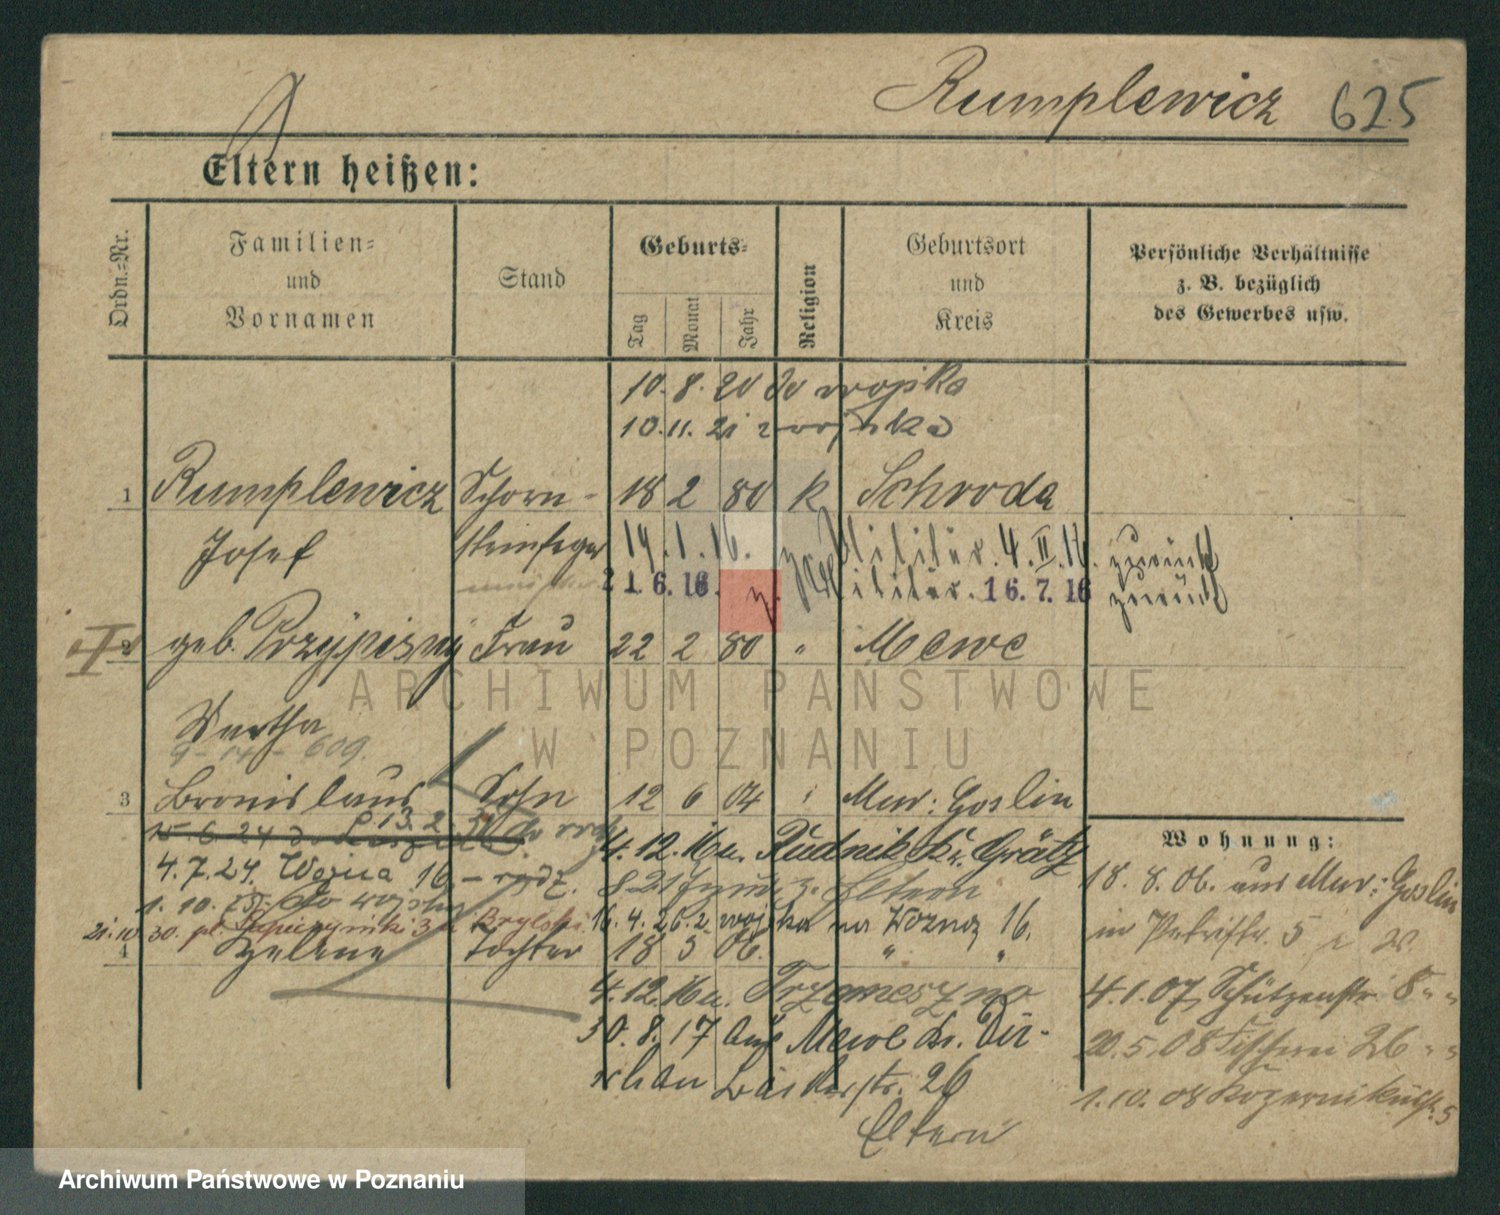 Rumplewicz 625
Eltern heißen:
Ordn.=Nr.
Familien=
und
Vornamen
Stand
Geburts=
Tag
Monat
Jahr
Religion
Geburtsort
und
Kreis
Persönliche Verhältnisse
z. B. bezüglich
des Gewerbes usw.
10. 8. 20 do wojska
10. 11. 21 z wojska
1 Rumplewicz Schorn- 18 2 80 k Schroda
Josef steinfeger 19. 1. 16. z. Militär. 4. II. 16. zurück
21. 6. 16. z. Militär. 16. 7. 16 zurück
2 geb. Przÿpisny Frau 22 2 80 " Mewe
Martha
ARCHIWUM PAŃSTWOWE
W POZNANIU
3 Bronislaus Sohn 12 6 04 Mur: Goslin
15. 6. 24 13. 2.
4. 12. 16 n. Rudnik Kr. Grätz
4. 7. 24. Woźna 16 - rodz.
z. Eltern
1. 10. do wojska
21. 10 30. pl. 3 Brylski 16. 4. 26. z wojska na Woźna 16.
4 Helene Tochter 18 5 06. " "
4. 12. 16 n. Trzemeszno
30. 8. 17 aus Mewe Kr. Dir-
schau 26
Eltern
Wohnung:
18. 8. 06. aus Mur: Goslin
in Petristr. 5
4. 1. 07, Schützenstr. 8 " "
20. 5. 08 Fischerei 26 " "
1. 10. 08 5
Archiwum Państwowe w Poznaniu